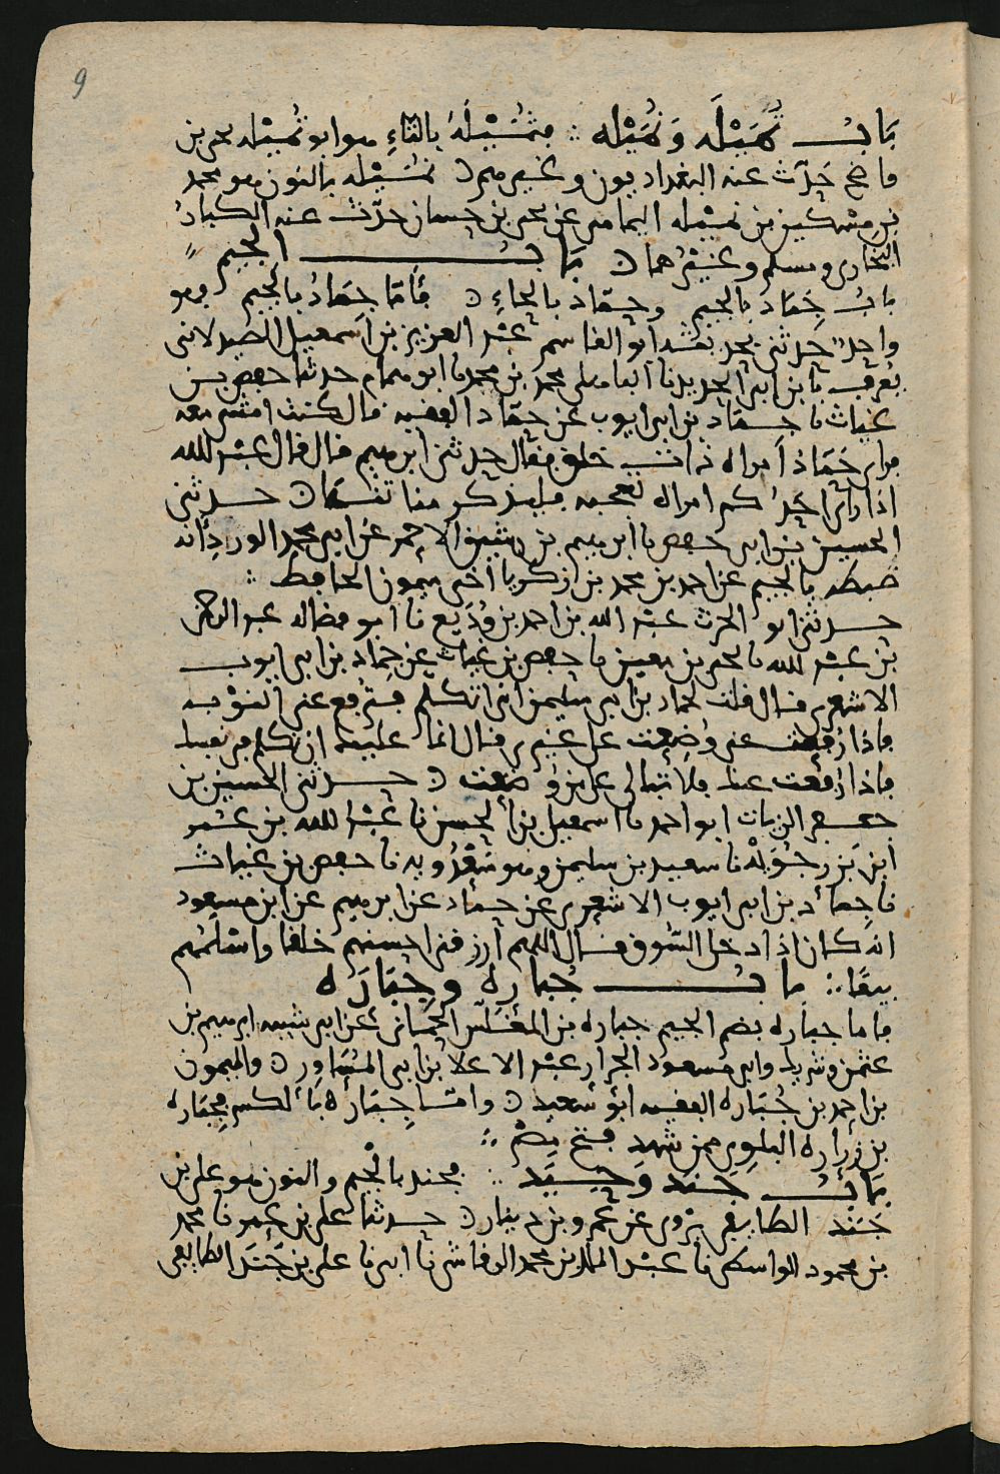 9
باب ثميلة ونميلة فثميلة بالثاء هو ابو ثميله يحيى بن
واضح حدث عنه البغداديون وغيرهم نميله بالنون هو محمد
بن مسكين بن نميله اليمامى عن يحيى بن حسان حدث عنه الكبار
البخارى ومسلم وغيرهما باب الجيم
باب جماد بالجيم وحماد بالحاء فأما جماد بالجيم فهو
واحد حدثنى بحديثه ابو القاسم عبد العزيز بن اسمعيل الصيدلانى
يعرف بابن ابى الحديد نا محمد بن محمد نا ابو همام حدثنا حفص بن
غياث نا جماد بن ابى ايوب عن حماد الفقيه قال كنت امشى معه
فراى حماد امراه ذات خلق فقال حدثنى ابرهيم قال قال عبد الله
اذا راى احدكم امراه تعجبه فليذكر حدثنى
الحسين بن ابى حفص نا ابرهيم بن الاحمر عن ابى محمد انه
ضبطه بالجيم عن احمد بن محمد بن زكريا اخى ميمون الحافظ
حدثنى ابو الحرث عبد الله بن احمد بن وديع نا ابو فضاله عبد الرحمن
بن عبد الله نا يحيى بن معين نا حفص بن غياث عن جماد بن ابى ايوب
الاشعرى قال قلت لحماد بن ابى سليمن انى اتكلم فترفع عنى النوبه
فاذا رفعت عنى وضعت على غيرى قال انما عليك ان تكلم فى نفسك
فاذا رفعت عنك فلا تبالى على من وضعت حدثنى الحسين بن
جعفر الزيات ابو احمد نا اسمعيل بن الحسن نا عبد الله بن عمر
ابن نا سعيد بن سليمن وهو سعدويه نا حفص بن غياث
نا جماد بن ابى ايوب الاشعرى عن حماد عن ابرهيم عن ابن مسعود
انه كان اذا دخل السوق قال اللهم ارزقنى احسنهم خلقا واسلمهم
بيعا باب جباره وجباره
فاما جباره بضم الجيم جباره بن المغلس الحمانى عن ابى شيبه ابرهيم بن
عثمن وشريك وابى مسعود الجرار عبد الاعلا بن ابى المساور والميمون
بن احمد بن جباره الفقيه ابو سعيد واما جباره بالكسر فجباره
بن زراره البلوى ممن شهد فتح مصر
باب جند وحيد فجند بالجيم والنون هو على بن
جند الطايفى يروى عن عمرو بن دينار حدثنا على بن عمر نا محمد
بن محمود الواسطى نا عبد الملك بن محمد الرقاشى نا ابى نا على بن جند الطايفى